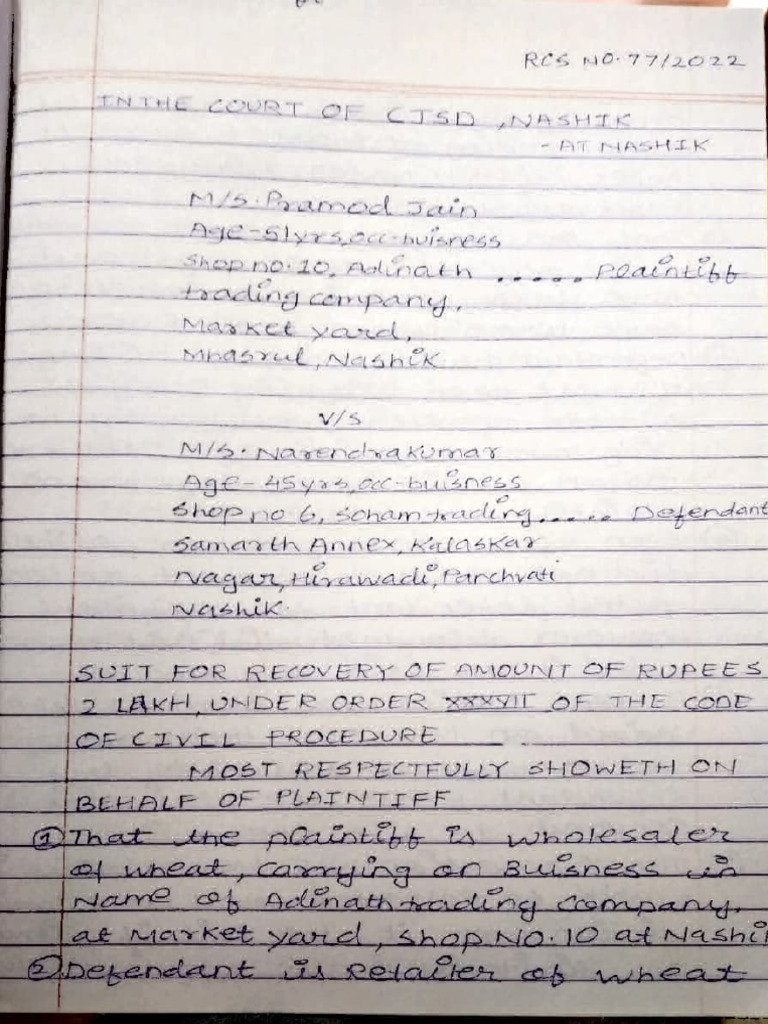 RCS NO. 77/2022
IN THE COURT OF CJSD, NASHIK
- AT NASHIK
M/S. Pramod Jain
Age-51yrs, occ-buisness
Shop no. 10, Adinath ..... Plaintiff
trading company,
Market yard,
Mhasrul, Nashik
V/S
M/S. Narendrakumar
Age-45yrs, occ-buisness
Shop no 6, soham trading..... Defendant
Samarth Annex, Kalaskar
Nagar, Hirawadi, Panchvati
Nashik.
SUIT FOR RECOVERY OF AMOUNT OF RUPEES
2 LAKH, UNDER ORDER XXXVII OF THE CODE
OF CIVIL PROCEDURE
MOST RESPECTFULLY SHOWETH ON
BEHALF OF PLAINTIFF
① That the plaintiff is wholesaler
of wheat, carrying on Buisness in
Name of Adinath trading company,
at Market yard, shop NO. 10 at Nashi
② Defendant is Retailer of wheat